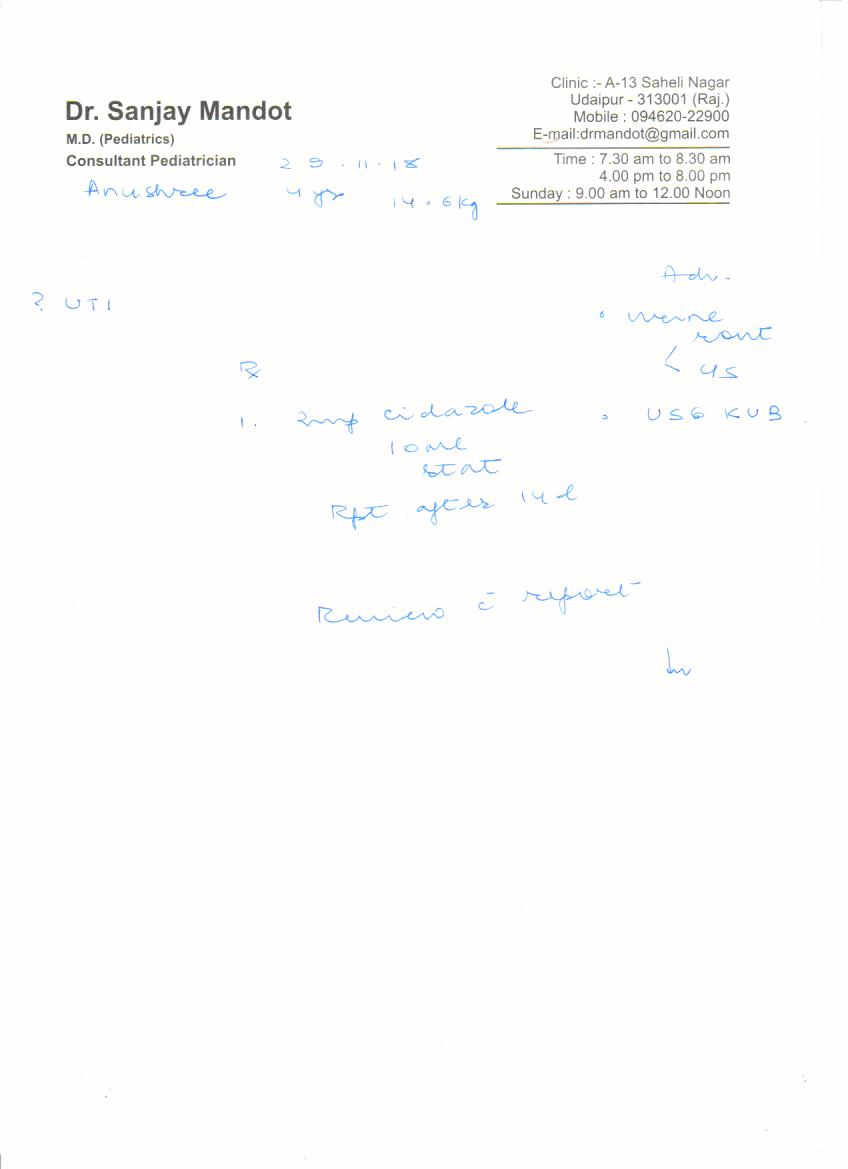 Dr. Sanjay Mandot
M.D. (Pediatrics)
Consultant Pediatrician
Clinic :- A-13 Saheli Nagar
Udaipur - 313001 (Raj.)
Mobile : 094620-22900
E-mail:drmandot@gmail.com
Time : 7.30 am to 8.30 am
4.00 pm to 8.00 pm
Sunday : 9.00 am to 12.00 Noon
29.11.18
Anushree 4 yr 14.6kg
? UTI
Adv.
urine
rout
< US
USG KUB
Rx
1. cidazole
10 ml
stat
Rpt after 14 d
Review c̄ report